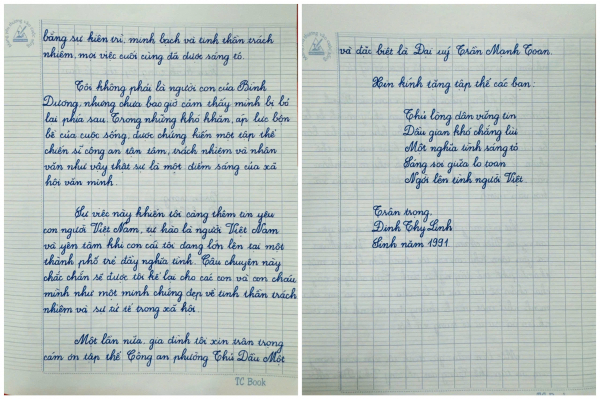 bằng sự kiên trì, minh bạch và tinh thần trách
nhiệm, mọi việc cuối cùng đã được sáng tỏ.
Tôi không phải là người con của Bình
Dương, nhưng chưa bao giờ cảm thấy mình bị bỏ
lại phía sau. Trong những khó khăn, áp lực bộn
bề của cuộc sống, được chứng kiến một tập thể
chiến sĩ công an tận tâm, trách nhiệm và nhân
văn như vậy thật sự là một điểm sáng của xã
hội văn minh.
Sự việc này khiến tôi càng thêm tin yêu
con người Việt Nam, tự hào là người Việt Nam
và yên tâm khi con cái tôi đang lớn lên tại một
thành phố trẻ đầy nghĩa tình. Câu chuyện này
chắc chắn sẽ được tôi kể lại cho các con và con cháu
mình như một minh chứng đẹp về tinh thần trách
nhiệm và sự tử tế trong xã hội.
Một lần nữa, gia đình tôi xin trân trọng
cảm ơn tập thể Công an phường Thủ Dầu Một
TC Book
và đặc biệt là Đại uý Trần Mạnh Toan.
Xin kính tặng tập thể các bạn:
Thủ lòng dân vững tin
Dầu gian khó chẳng lùi
Một nghĩa tình sáng tỏ
Sáng soi giữa lo toan
Ngời lên tình người Việt.
Trân trọng.
Đinh Thy Linh
Sinh năm 1991